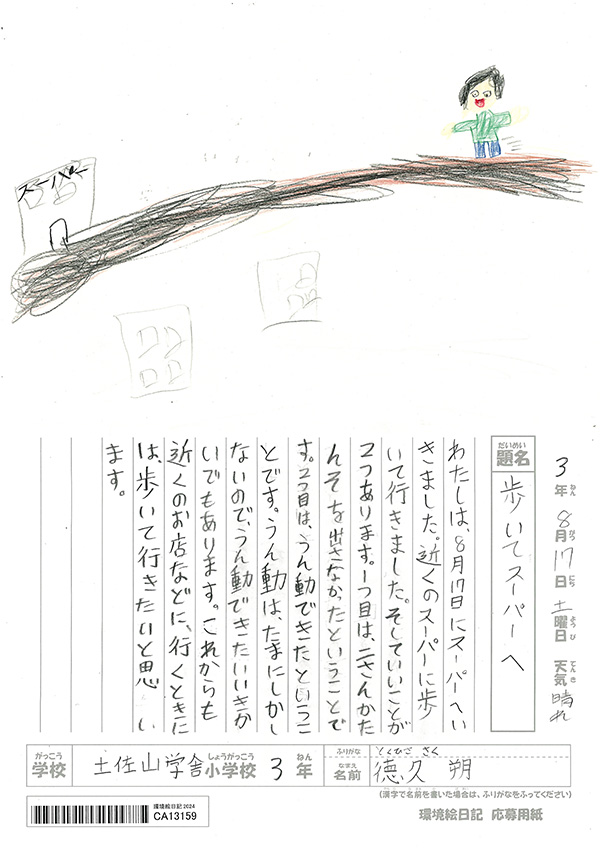 スーパー
3年ねん 8月がつ 17日にち 土曜日ようび 天気てんき 晴れ
だいめい
題名
歩いてスーパーへ
わたしは、8月17日にスーパーへい
きました。近くのスーパーに歩
いて行きました。そしていいことが
2つあります。1つ目は、二さんかた
んそを出さなかったということで
す。2つ目は、うん動できたというこ
とです。うん動は、たまにしかし
ないので、うん動できたいいきか
いでもあります。これからも
近くのお店などに、行くときに
は、歩いて行きたいと思い
ます。
がっこう しょうがっこう ねん
学校 土佐山学舎小学校 3年
ふりがな とくひさ さく
なまえ
名前 徳久 朔
(漢字で名前を書いた場合は、ふりがなをふってください)
環境絵日記 2024
CA13159
環境絵日記 応募用紙